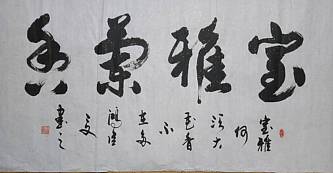 室雅蘭香
室雅
何
須大
花香
不
在多
書之